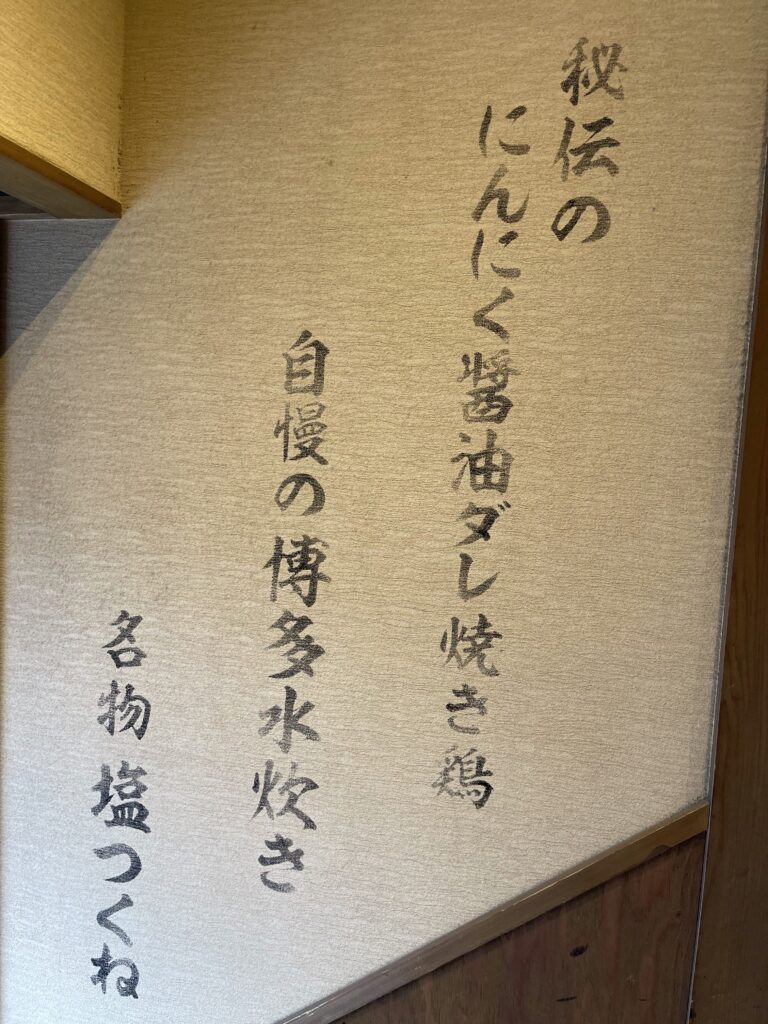 秘伝の
にんにく醤油ダし焼き鶏
自慢の博多水炊き
名物 塩つくね